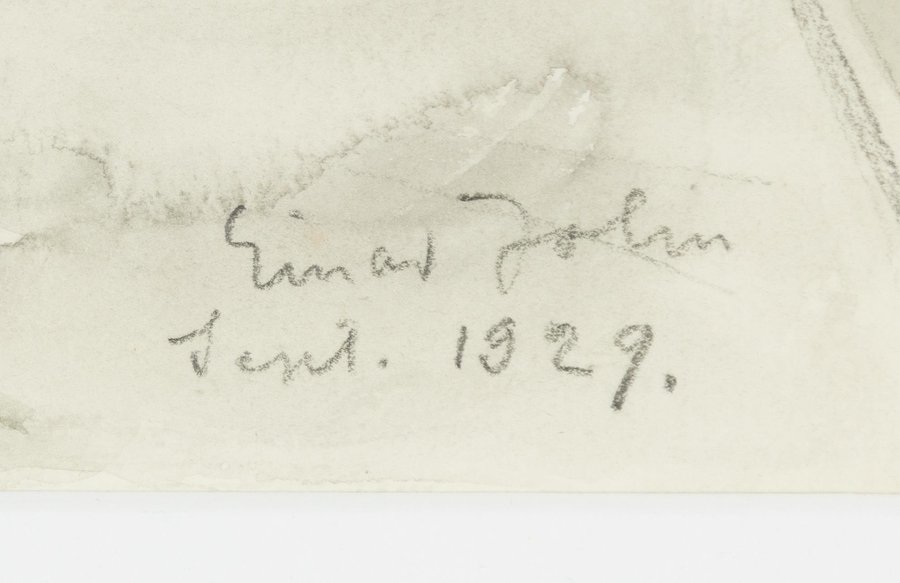 Einar John
Sept. 1929.